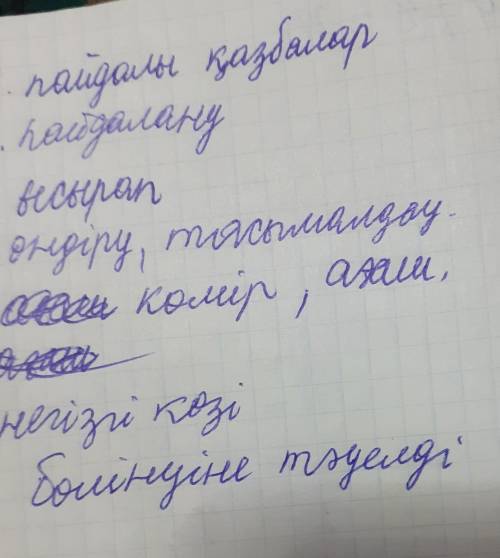 пайдалы қазбалар
пайдалану
ысырап
өндіру, тасымалдау.
көмір, ағаш,
негізгі көзі
бөлінуіне тәуелді